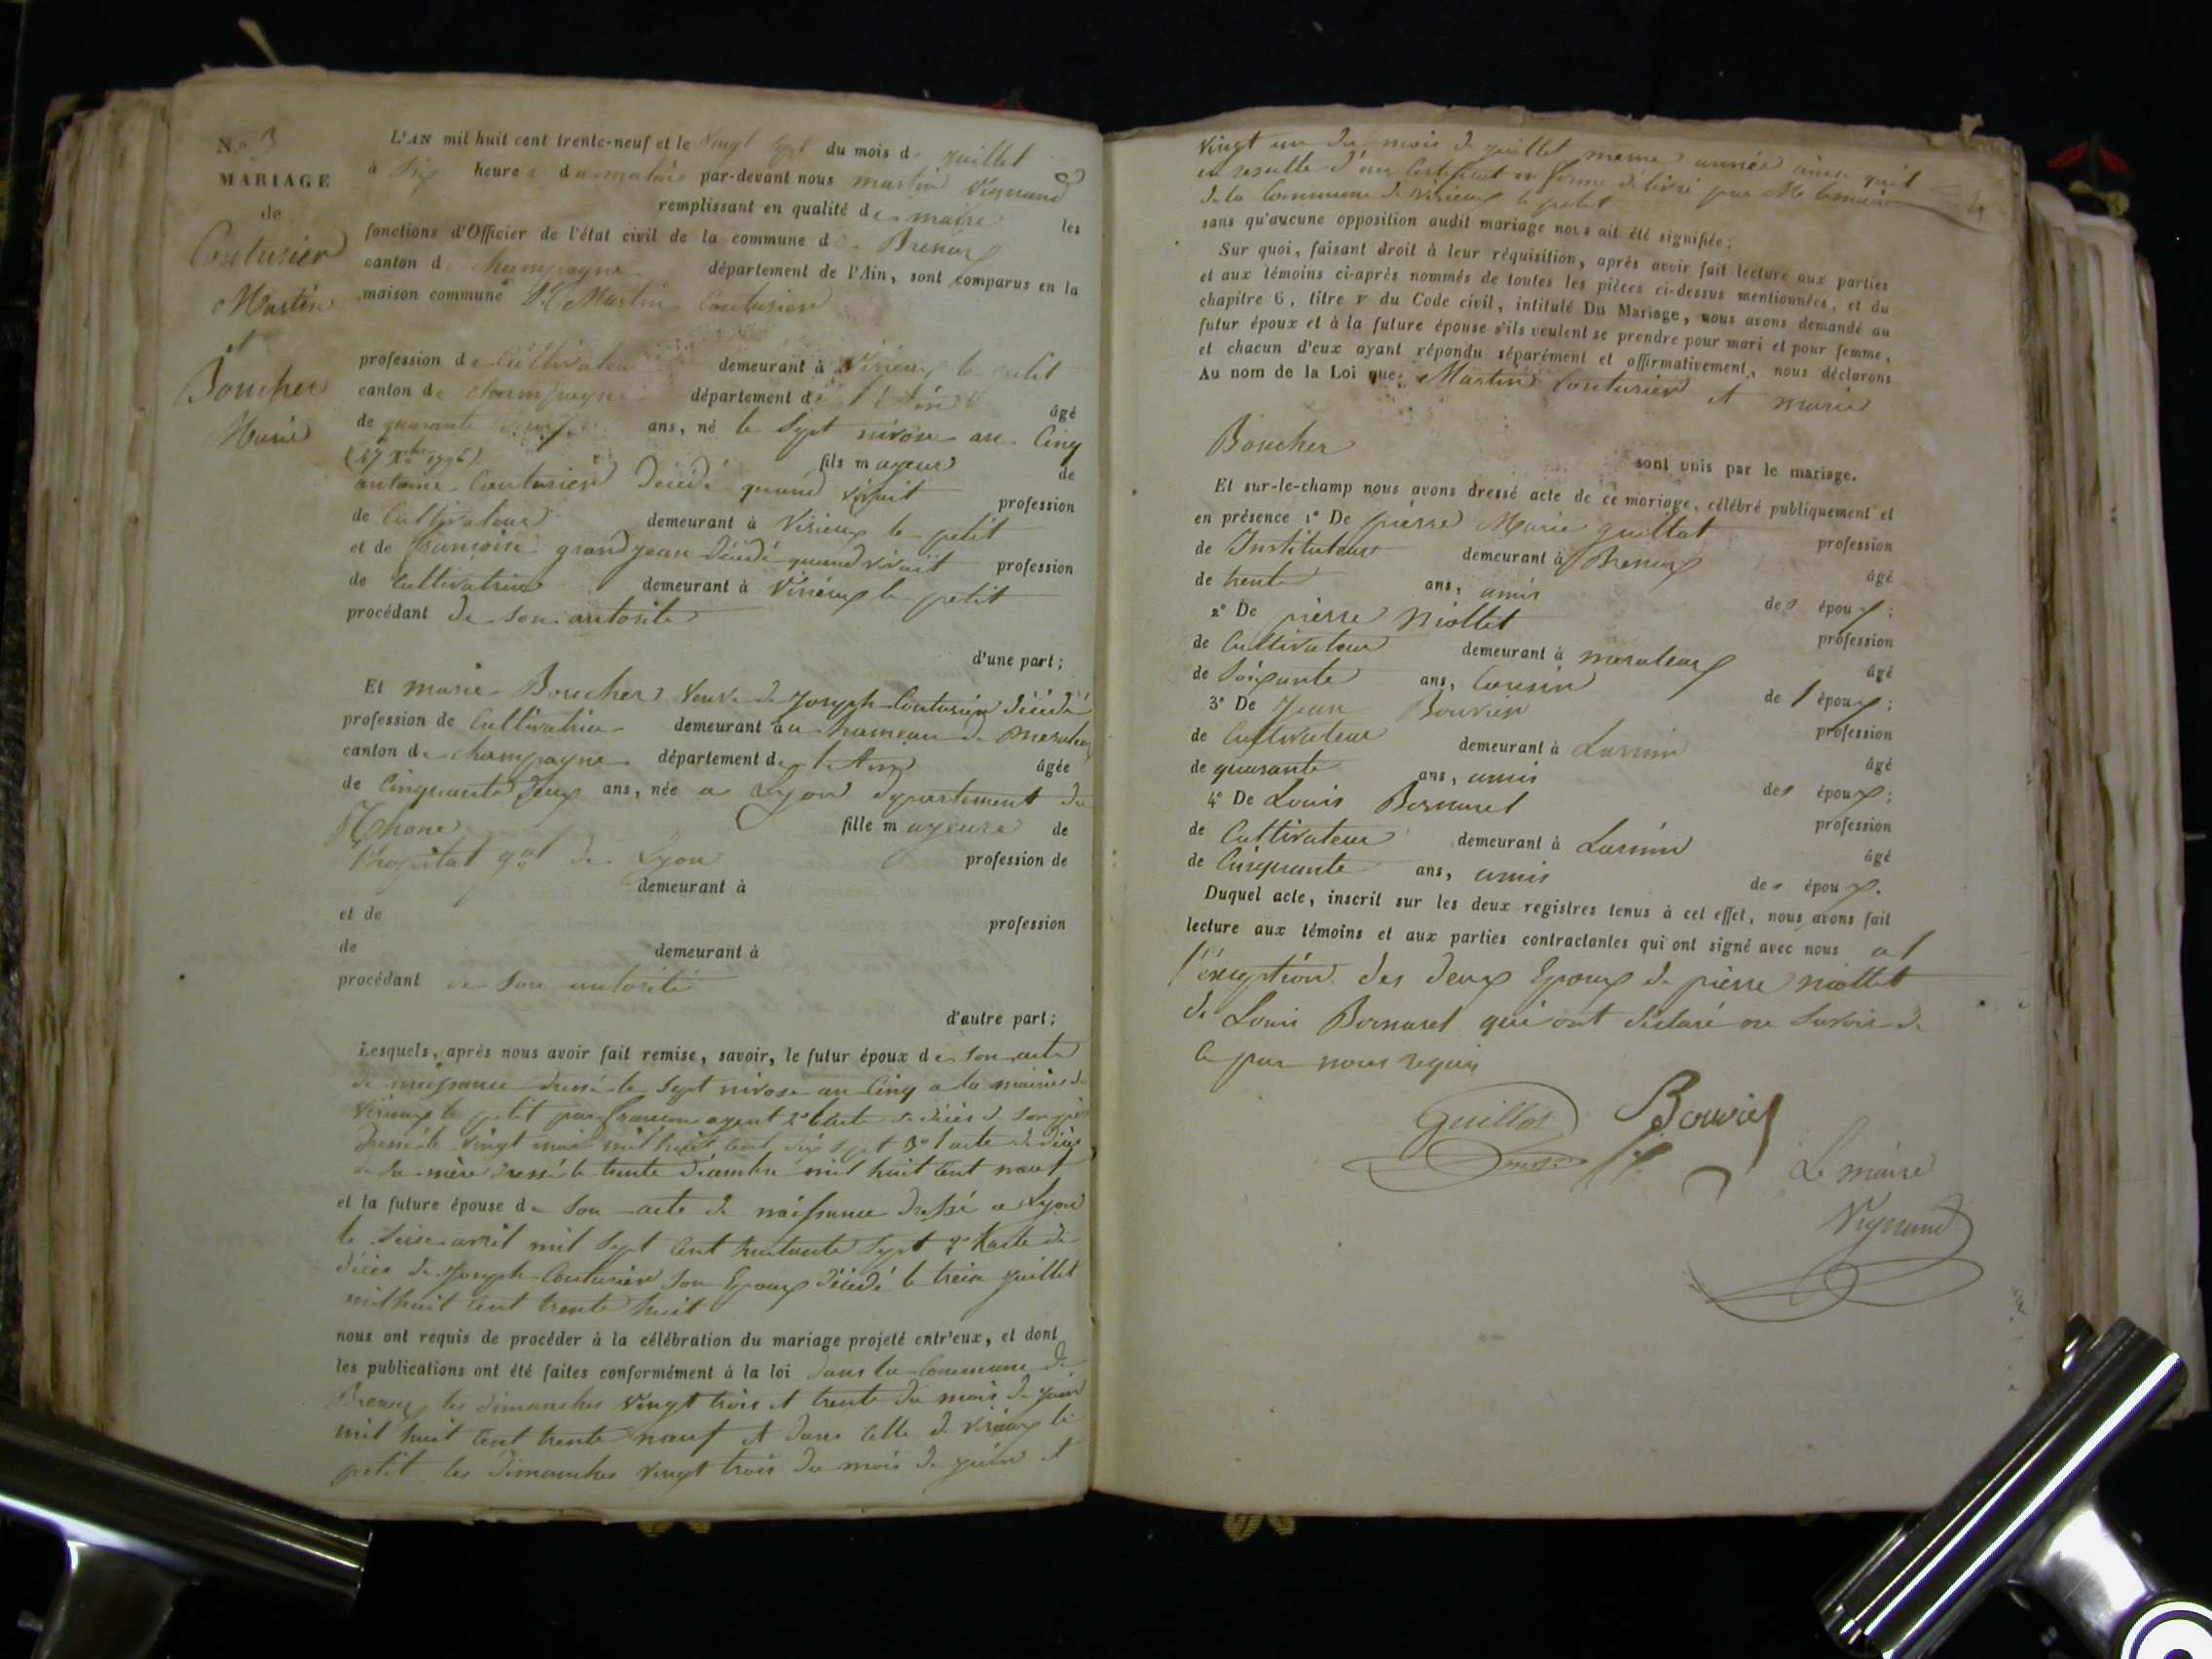 N.º 3
MARIAGE
de
Couturier
Martin
et
Boucher
Marie
L'AN mil huit cent trente-neuf et le vingt sept du mois de juillet
à heures du matin par-devant nous martin Vignand
remplissant en qualité de maire les
fonctions d'Officier de l'état civil de la commune de Brenaz
canton de champagne département de l'Ain, sont comparus en la
maison commune Martin Couturier
profession de Cultivateur demeurant à Virieux le petit
canton de champagne département de l'Ain âgé
de quarante ans, né le Sept nivose an Cinq
fils mayeur de
antoine Couturier Décédé quand vivait profession
de Cultivateur demeurant à Virieux le petit
et de françoise grandjean Décédé quand vivait profession
de Cultivatrice demeurant à Virieux le petit
procédant de son autorité
d'une part;
Et marie Boucher veuve de Joseph Couturier décédé
profession de Cultivatrice demeurant au hameau de
canton de champagne département de l'Ain âgée
de Cinquante deux ans, née a Lyon département du
Rhone fille mayeure de
l'hopital gal de Lyon profession de
demeurant à
et de profession
de demeurant à
procédant de son autorité
d'autre part;
Lesquels, après nous avoir fait remise, savoir, le futur époux de son acte
de naissance dressé le Sept nivose an Cinq a la mairie de
Virieux le petit par agent 2º l'acte de décès de son père
dressé le vingt mai mil huit cent dix sept 3º l'acte de décès
de sa mère dressé le trente décembre mil huit cent neuf
et la future épouse de son acte de naissance dressé a Lyon
le Seize avril mil Sept cent Sept 2º l'acte de
décès de Joseph Couturier son Epoux décédé le treize juillet
mil huit cent trente huit
nous ont requis de procéder à la célébration du mariage projeté entr'eux, et dont
les publications ont été faites conformément à la loi dans la Commune de
Brenaz les dimanches vingt trois et trente du mois de juin
mil huit cent trente neuf et dans celle de virieux le
petit les dimanches vingt trois du mois de juin et
vingt un du mois de juillet même année ainsi qu'il
en resulte d'un Certificat en forme délivré par Mr le maire
de la Commune de virieux le petit
sans qu'aucune opposition audit mariage nous ait été signifiée;
Sur quoi, faisant droit à leur réquisition, après avoir fait lecture aux parties
et aux témoins ci-après nommés de toutes les pièces ci-dessus mentionnées, et du
chapitre 6, titre v du Code civil, intitulé Du Mariage, nous avons demandé au
futur époux et à la future épouse s'ils veulent se prendre pour mari et pour femme,
et chacun d'eux ayant répondu séparément et affirmativement, nous déclarons
Au nom de la Loi que Martin Couturier et marie
Boucher
sont unis par le mariage.
Et sur-le-champ nous avons dressé acte de ce mariage, célébré publiquement et
en présence 1º De pierre Marie guillot profession
de Instituteur demeurant à Brenaz âgé
de trente ans, amis des époux;
2º De pierre Niollet profession
de Cultivateur demeurant à âgé
de Soixante ans, Cousin de l'époux;
3º De Jean Bouvier profession
de Cultivateur demeurant à Lusnin âgé
de quarante ans, amis des époux;
4º De Louis Bornarel profession
de Cultivateur demeurant à Lusnin âgé
de Cinquante ans, amis des époux.
Duquel acte, inscrit sur les deux registres tenus à cet effet, nous avons fait
lecture aux témoins et aux parties contractantes qui ont signé avec nous a l
l'éxception des deux Epoux de pierre niollet
de Louis Bornarel qui ont déclaré ne Savoir de
ce par nous requis
Guillot
Bouvier
Le maire
Vignand